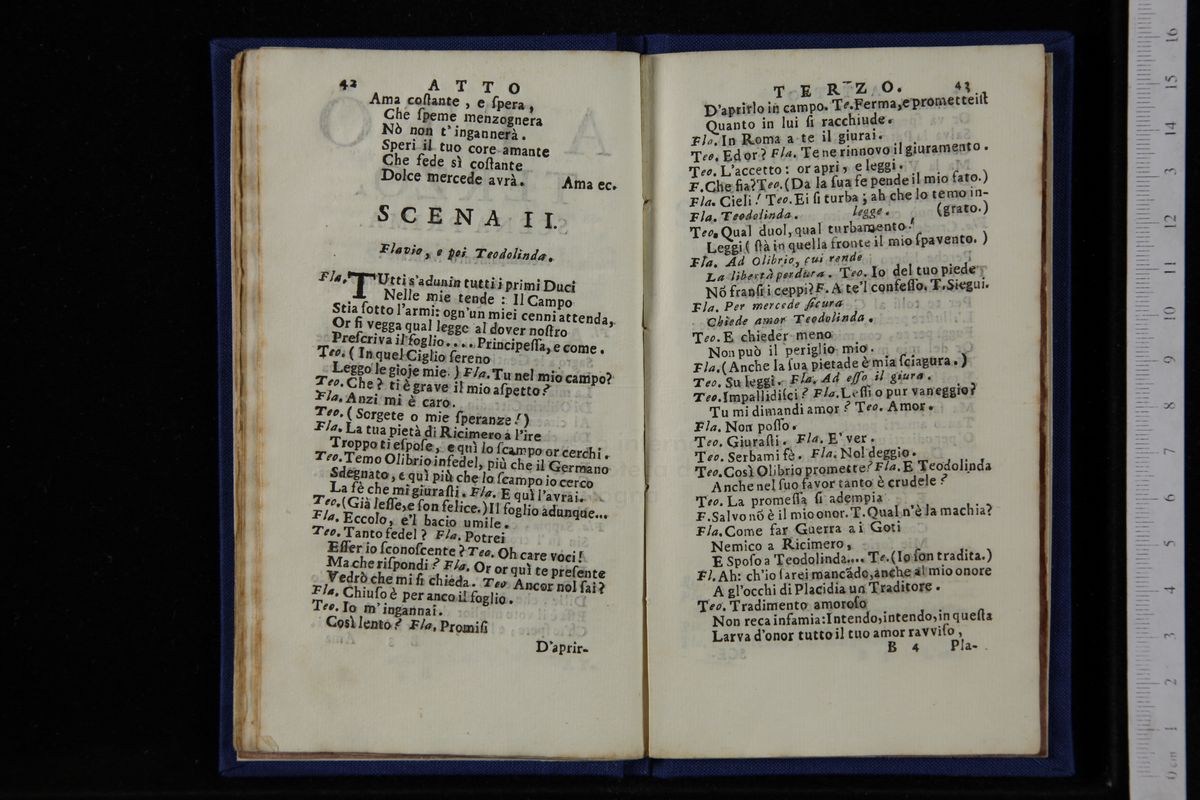 42 ATTO
Ama coſtante , e ſpera ,
Che ſpeme menzognera
Nò non t'ingannerà.
Speri il tuo core amante
Che fede sì coſtante
Dolce mercede avrà. Ama ec.
SCENA II.
Flavio, e poi Teodolinda.
Fla. TUtti s'adunin tutti i primi Duci
Nelle mie tende : Il Campo
Stia ſotto l'armi: ogn'un miei cenni attenda,
Or ſi vegga qual legge al dover noſtro
Preſcriva il foglio.... Principeſſa, e come.
Teo. ( In quel Ciglio ſereno
Leggo le gioje mie. ) Fla. Tu nel mio campo?
Teo. Che ? ti è grave il mio aſpetto ?
Fla. Anzi mi è caro.
Teo. ( Sorgete o mie ſperanze ! )
Fla. La tua pietà di Ricimero a l'ire
Troppo ti eſpoſe, e quì lo ſcampo or cerchi.
Teo. Temo Olibrio infedel, più che il Germano
Sdegnato, e quì più che lo ſcampo io cerco
La fè che mi giuraſti. Fla. E quì l'avrai.
Teo. (Già leſſe, e ſon felice.) Il foglio adunque...
Fla. Eccolo, e'l bacio umile.
Teo. Tanto fedel ? Fla. Potrei
Eſſer io ſconoſcente ? Teo. Oh care voci !
Ma che riſpondi ? Fla. Or or quì te preſente
Vedrò che mi ſi chieda. Teo Ancor nol ſai ?
Fla. Chiuſo è per anco il foglio.
Teo. Io m'ingannai.
Così lento ? Fla. Promiſi
D'aprir-
TERZO. 43
D'aprirlo in campo. Te. Ferma, e prometteiſt
Quanto in lui ſi racchiude.
Fla. In Roma a te il giurai.
Teo. Ed or ? Fla. Te ne rinnovo il giuramento.
Teo. L'accetto : or apri, e leggi.
F. Che fia? Teo. (Da la ſua fe pende il mio fato.)
Fla. Cieli ! Teo. Ei ſi turba ; ah che lo temo in-
Fla. Teodolinda. legge. (grato.)
Teo. Qual duol, qual turbamento !
Leggi ( ſtà in quella fronte il mio ſpavento. )
Fla. Ad Olibrio, cui rende
La libertà perduta. Teo. Io del tuo piede
Nõ franſi i ceppi? F. A te'l confeſſo. T. Siegui.
Fla. Per mercede ſicura
Chiede amor Teodolinda.
Teo. E chieder meno
Non può il periglio mio.
Fla. (Anche la ſua pietade è mia ſciagura. )
Teo. Su leggi. Fla. Ad eſſo il giura.
Teo. Impallidiſci ? Fla. Leſſi o pur vaneggio ?
Tu mi dimandi amor ? Teo. Amor.
Fla. Non poſſo.
Teo. Giuraſti. Fla. E' ver.
Teo. Serbami fè. Fla. Nol deggio.
Teo. Così Olibrio promette? Fla. E Teodolinda
Anche nel ſuo favor tanto è crudele ?
Teo. La promeſſa ſi adempia
F. Salvo nõ è il mio onor. T. Qual n'è la machia?
Fla. Come far Guerra a i Goti
Nemico a Ricimero,
E Spoſo a Teodolinda.... Te. (Io ſon tradita.)
Fl. Ah: ch'io ſarei mancãdo, anche al mio onore
A gl'occhi di Placidia un Traditore.
Teo. Tradimento amoroſo
Non reca infamia: Intendo, intendo, in queſta
Larva d'onor tutto il tuo amor ravviſo,
B 4 Pla-